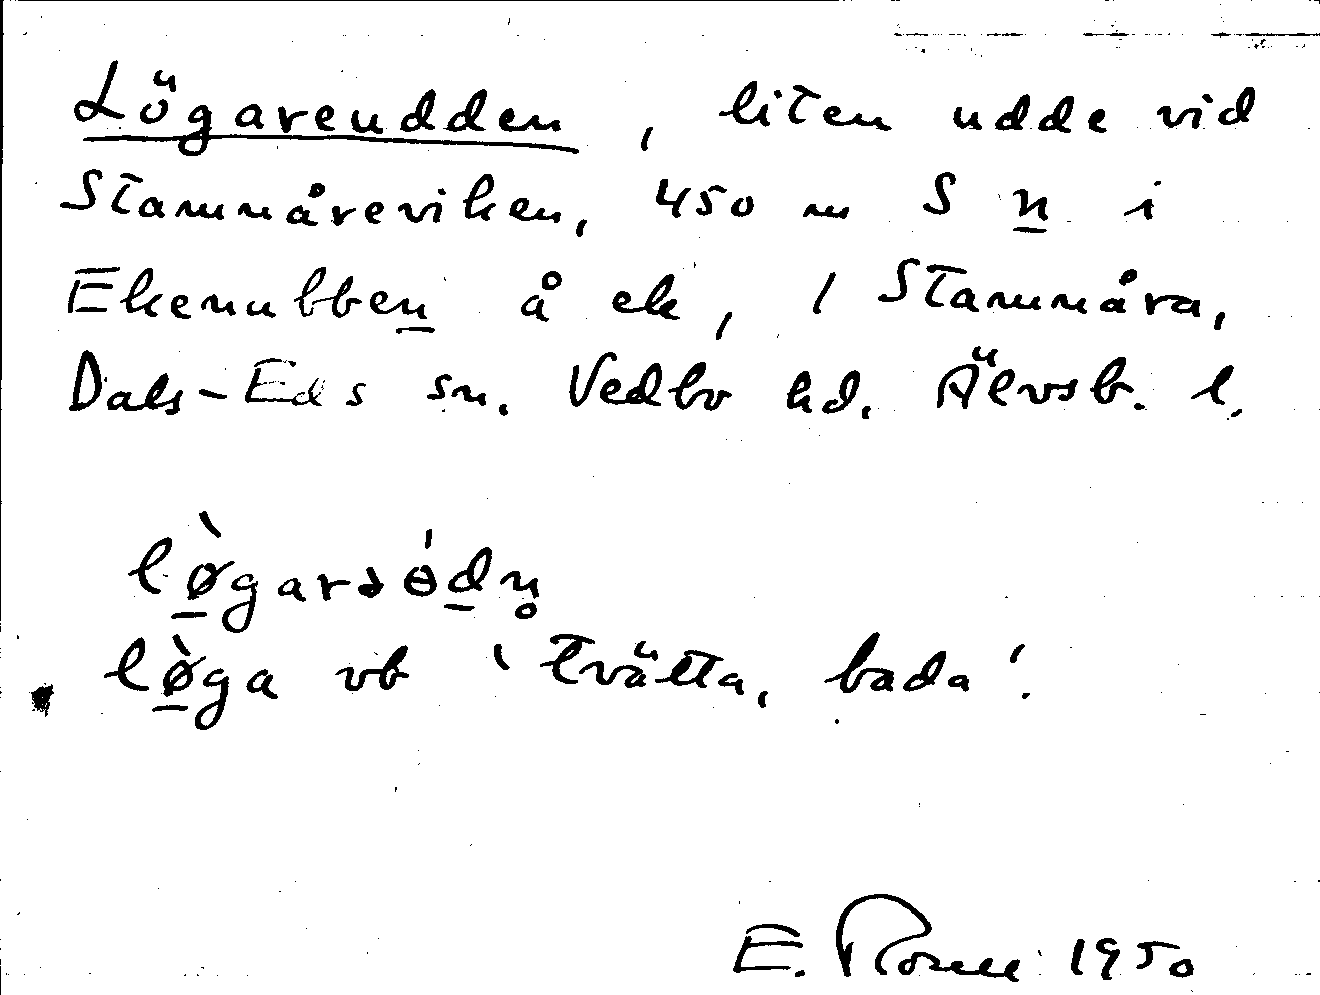 Lögareudden, liten udde vid
Stammåreviken, 450 m S n i
Ekenubben å ek, / Stammåra,
Dals-Eds sn. Vedbo hd. Älvsb. l.
lø̀garəɵ́dn̥
lø̀ga vb 'tvätta, bada'.
E. 1950